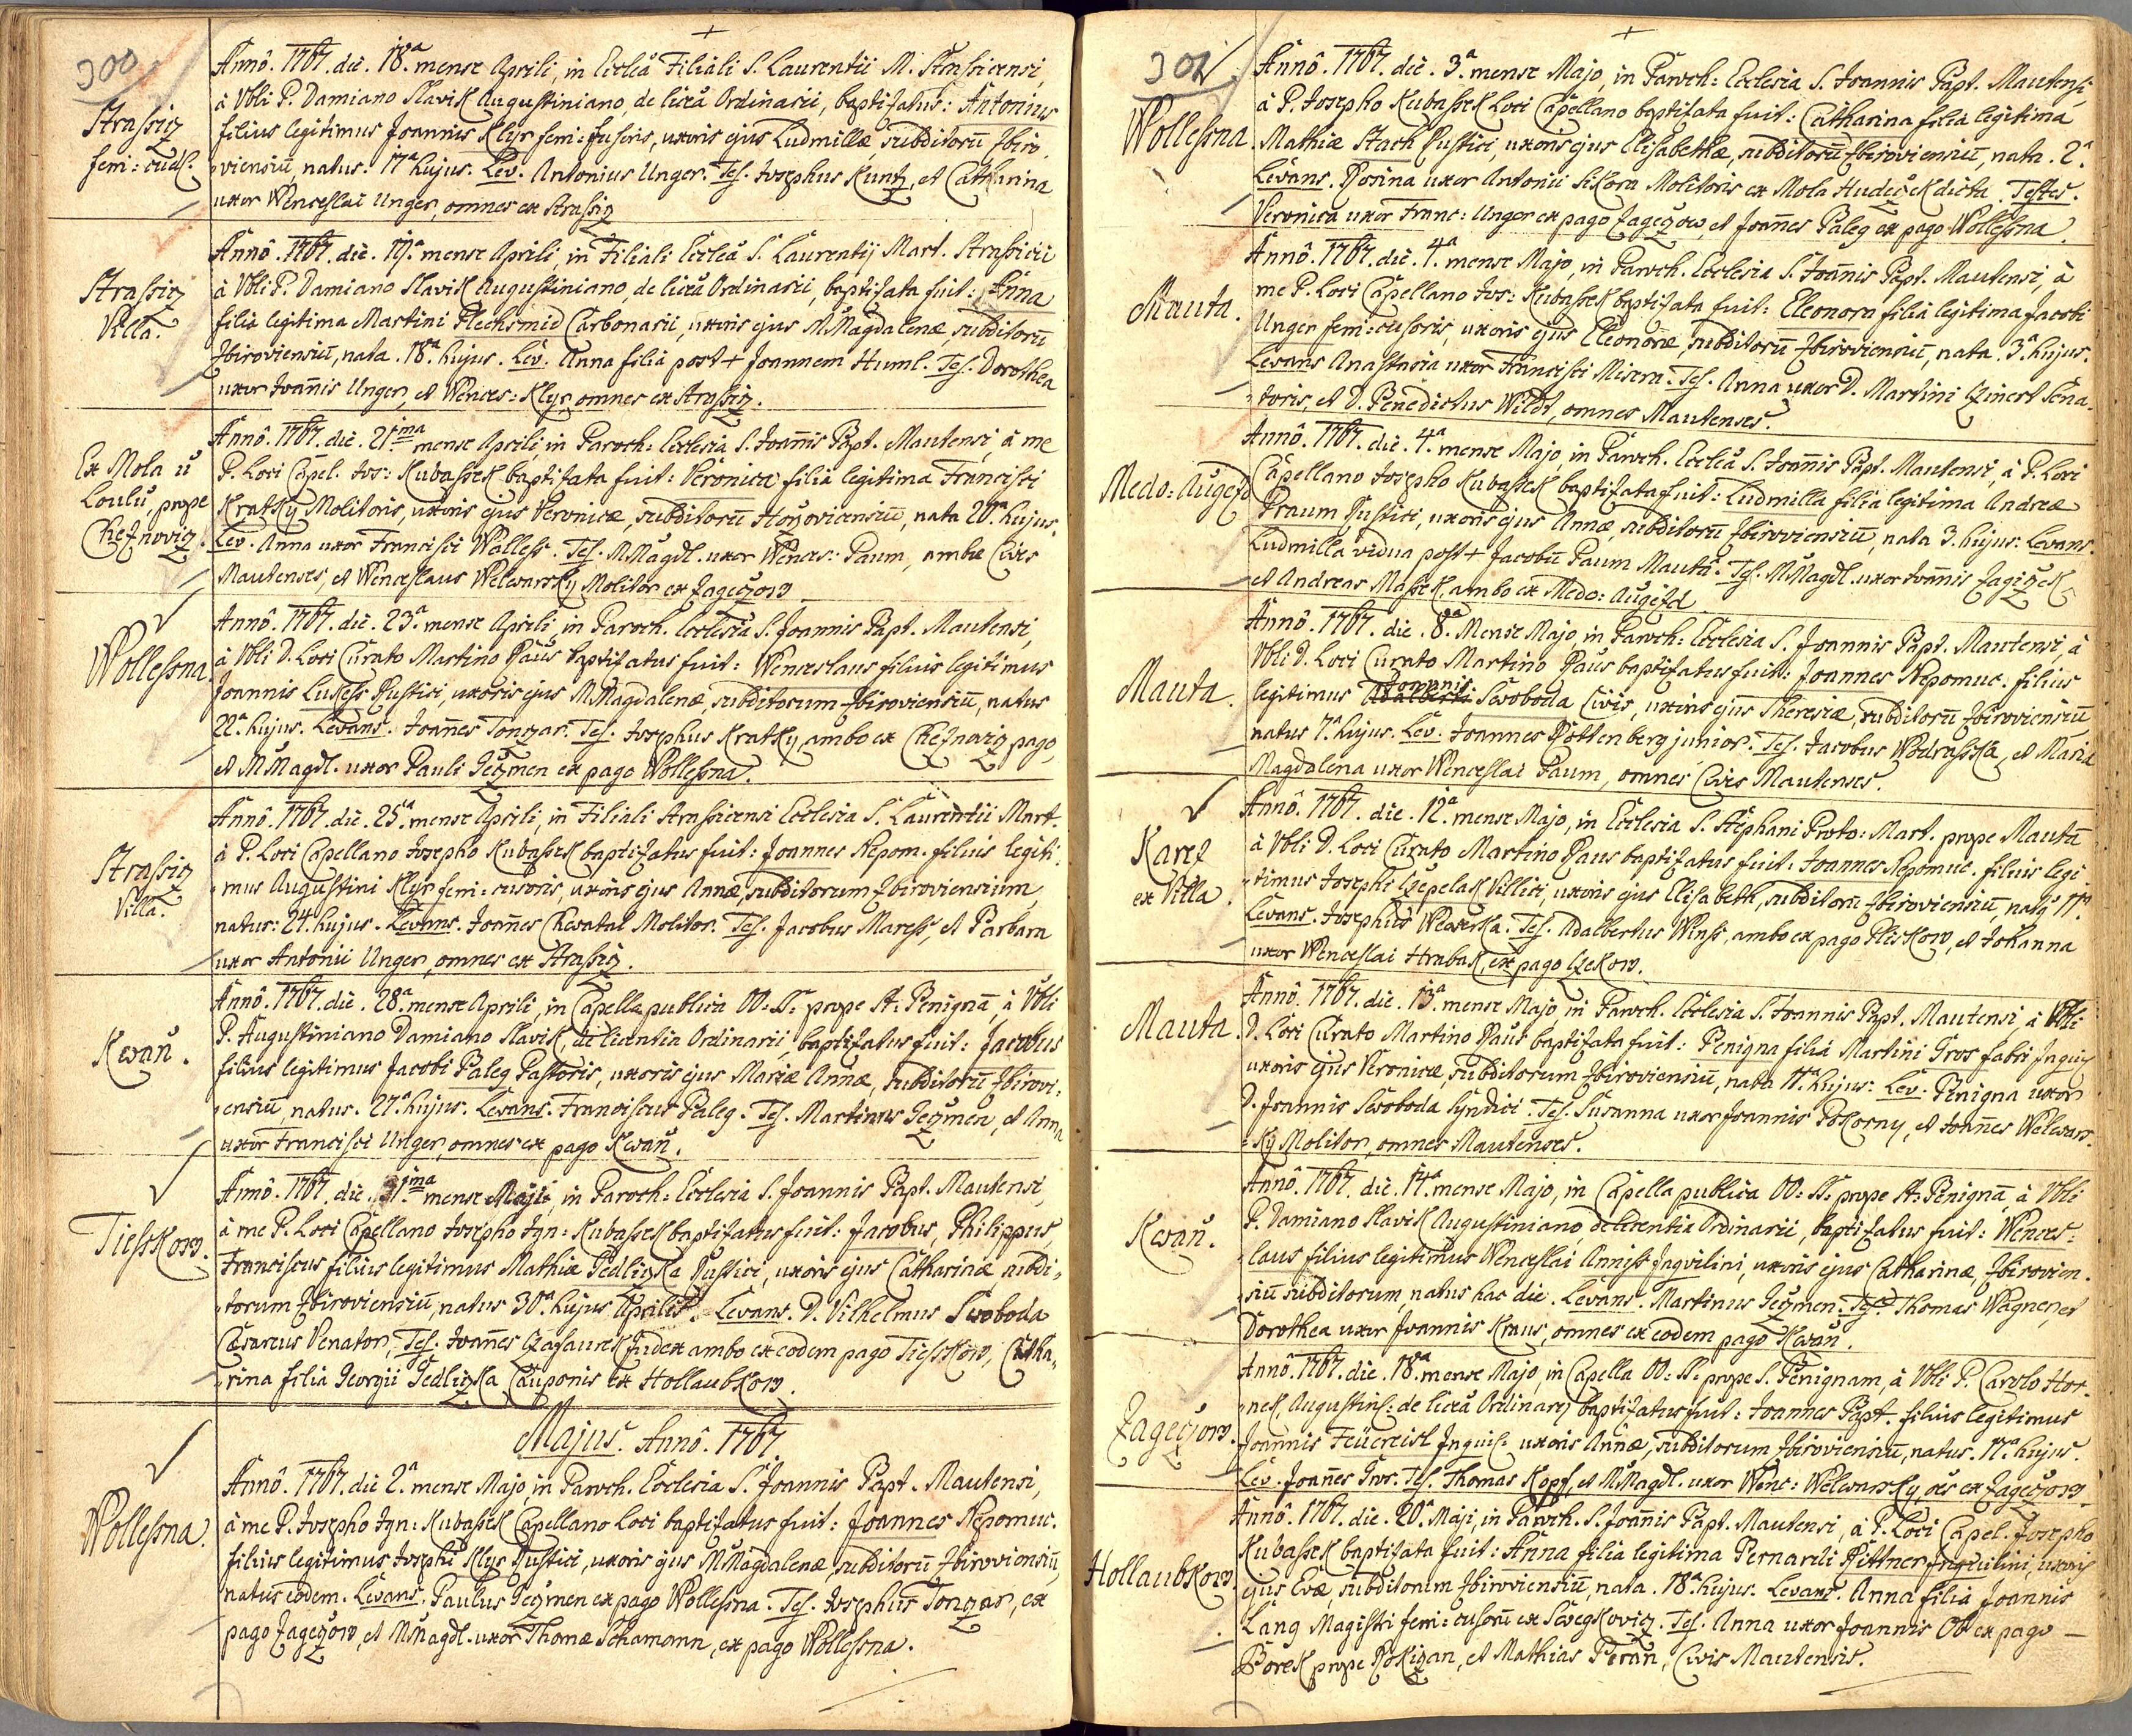 300
Strassicz
feni: cudl.
Annô. 1767. die. 18ª mense Aprili, in Eccleâ Filiali S. Laurentii M. Strassicensi,
à Vbli P. Damiano Slavik Augustiniano, de liciâ Ordinarii, baptizatus: Antonius
filius legitimus Joannis Klyr feni: fusoris, uxoris ejus Ludmillæ, subditorũ Zbiro-
viensiũ, natus. 17ª hujus. Lev. Antonius Unger. Tes. Josephus Kuntz, et Catharina
uxor Wenceslai Unger, omnes ex Strassicz
Strassicz
Villa.
Annô. 1767. die. 19ª mense Aprili, in Filiali Eccleâ S. Laurentij Mart. Strassicii
à Vbli P. Damiano Slavik Augustiniano, de liciâ Ordinarii, baptizata fuit: Anna
filia legitima Martini Plechsmid Carbonarii, uxoris ejus M.Magdalenæ, subditorũ
Zbiroviensiũ, nata. 18ª hujus. Lev. Anna filia post + Joannem Huml. Tes. Dorothea
uxor Joañis Unger, et Wences: Klyr omnes ex Strassicz.
Ex Mola ů
Loulů, prope
Cheznovicz.
Annô. 1767. die. 21ima mense Aprili, in Paroch: Ecclesia S. Joañis Bapt. Mautensi, à me
P. Loci Capel. Jos: Kubassek baptizata fuit: Veronica filia legitima Francisci
Kratky Molitoris, uxoris ejus Veronicæ, subditorũ Hořoviensiũ, nata 20ª hujus.
Lev. Anna uxor Francisci Walless. Tes. M.Magdl. uxor Wences: Paum, ambæ Cives
Mautenses, et Wenceslaus Welwarsky Molitor ex Zageczow
Wollessna
Annô. 1767. die. 23ª mense Aprili, in Paroch. Ecclesia S. Joannis Bapt. Mautensi,
à Vbli D. Loci Curato Martino Paus baptizatus fuit: Wenceslaus filius legitimus
Joannis Lukess Rustici, uxoris ejus M.Magdalenæ, subditorum Zbiroviensiũ, natus
22ª hujus. Levans. Joañes Tonzar. Tes. Josephus Kratky, ambo ex Cheznovicz pago,
et M.Magdl. uxor Pauli Geczmen ex pago Wollessna.
Strassicz
Villa.
Annô. 1767. die. 25ª mense Aprili, in Filiali Strassicensi Ecclesia S. Laurentii Mart.
à P. Loci Capellano Josepho Kubassek baptizatus fuit: Joannes Nepom. filius legiti-
mus Augustini Klyr feni: cusoris, uxoris ejus Annæ, subditorum Zbiroviensium,
natus: 24. hujus. Levans. Joañes Chwatal Molitor. Tes. Jacobus Maress, et Barbara
uxor Antonii Unger, omnes ex Strassicz.
Kwañ.
Annô. 1767. die. 28ª mense Aprili, in Capella publica OO: SS: prope St: Benignã, à Vbli
P. Augustiniano Damiano Slavik, de licentia Ordinarii, baptizatus fuit: Jacobus
filius legitimus Jacobi Paleg Pastoris, uxoris ejus Mariæ Annæ, subditorũ Zbirovi-
ensiũ, natus. 27ª hujus. Levans. Franciscus Paleg. Tes. Martinus Geczmen, et Anna
uxor Francisci Unger, omnes ex pago Kwañ.
Tiesskow.
Annô. 1767. die. 1ima mense Maji, in Paroch: Ecclesia S. Joannis Bapt. Mautensi,
à me P. Loci Capellano Josepho Ign: Kubassek baptizatus fuit: Jacobus, Philippus,
Franciscus filius legitimus Mathiæ Gedliczka Rustici, uxoris ejus Catharinæ subdi-
torum Zbiroviensiũ, natus 30ª hujus Aprilis. Levans. D. Vilhelmus Swoboda
Cæsareus Venator, Tes. Joañes Czasaurek Judex ambo ex eodem pago Tiesskow, Catha-
rina filia Georgii Gedliczka Cauponis ex Hollaubkow.
Majus. Annô. 1767.
Wollessna.
Annô. 1767. die 2ª mense Majo, in Paroch. Ecclesia S. Joannis Bapt. Mautensi,
à me P. Josepho Ign: Kubassek Capellano Loci baptizatus fuit: Joannes Nepomuc.
filius legitimus Josephi Klyr Rustici, uxoris ejus M.Magdalenæ, subditorũ Zbiroviensiũ,
natus eodem. Levans. Paulus Geczmen ex pago Wollessna. Tes. Josephus Tonzar, ex
pago Zageczow, et M.Magdl. uxor Thomæ Schamonn, ex pago Wollessna.
301
Wollessna
Annô. 1767. die. 3ª mense Majo, in Paroch: Ecclesia S. Joannis Bapt. Mautensi,
à P. Josepho Kubassek Loci Capellano baptizata fuit: Catharina filia legitima
Mathiæ Stach Rustici, uxoris ejus Elisabethæ, subditorũ Zbiroviensiũ, nata. 2ª
Levans. Rosina uxor Antonii Sikora Molitoris ex Mola Hudeczek dicta. Testes.
Veronica uxor Franc: Unger ex pago Zageczow, et Joañes Paleg ex pago Wollessna.
Mauta.
Annô. 1767. die. 4ª mense Majo, in Paroch. Ecclesia S. Joañis Bapt. Mautensi, à
me P. Loci Capellano Jos: Kubassek baptizata fuit: Eleonora filia legitima Jacobi
Unger feni: cusoris, uxoris ejus Eleonoræ, subditorũ Zbiroviensiũ, nata. 3ª hujus.
Levans Anastasia uxor Francisci Misera. Tes. Anna uxor D. Martini Czinert Sena-
toris, et D. Benedictus Wildt, omnes Mautenses.
Medo: Augezd
Annô. 1767. die. 4ª mense Majo, in Paroch. Eccleâ S. Joañis Bapt. Mautensi, à P. Loci
Capellano Josepho Kubassek baptizata fuit: Ludmilla filia legitima Andreæ
Braum Rustici, uxoris ejus Annæ, subditorũ Zbiroviensiũ, nata 3. hujus: Levans.
Ludmilla vidua post + Jacobũ Paum Mautã. Tes. M.Magdl. uxor Joañis Zagiczek,
et Andreas Massek, ambo ex Medo: Augezd
Mauta.
Annô. 1767. die. 8ª Mense Majo in Paroch: Ecclesia S. Joannis Bapt. Mautensi, à
Vbli D. Loci Curato Martino Paus baptizatus fuit: Joannes Nepomuc. filius
legitimus Adalberti Joannis Swoboda Civis, uxoris ejus Theresiæ, subditorũ Zbiroviensiũ
natus 7ª hujus. Lev. Joannes Rottenberg junior. Tes. Jacobus Wodrasska, et Maria
Magdalena uxor Wenceslai Paum, omnes Cives Mautenses.
Karez
ex Villa.
Annô. 1767. die. 12ª mense Majo, in Ecclesia S. Stephani Proto: Mart. prope Mautã
à Vbli D. Loci Curato Martino Paus baptizatus fuit: Joannes Nepomuc. filius legi-
timus Josephi Czepelak Villici, uxoris ejus Elisabeth, subditorũ Zbiroviensiũ, natq 11ª
Levans. Josephus Wewerka. Tes. Adalbertus Winss, ambo ex pago Pliskow, et Johanna
uxor Wenceslai Hrabak, ex pago Czekow.
Mauta.
Annô. 1767. die. 13ª mense Majo, in Paroch. Ecclesia S. Joannis Bapt. Mautensi à Vbli
D. Loci Curato Martino Paus baptizata fuit: Benigna filia Martini Gros fabri Inquil
uxoris ejus Veronicæ, subditorum Zbiroviensiũ, nata 11ª hujus: Lev. Benigna uxor
D. Joannis Swoboda Syndici. Tes. Susanna uxor Joannis Pokorny, et Joañes Welwars-
ky Molitor, omnes Mautenses.
Kwañ.
Annô. 1767. die. 14ª mense Majo, in Capella publica OO: SS: prope St. Benignã, à Vbli
P. Damiano Slavik Augustiniano, de licentia Ordinarii, baptizatus fuit: Wences-
laus filius legitimus Wenceslai Anniss Inquilini, uxoris ejus Catharinæ, Zbirovien-
siũ subditorum natus hac die. Levans. Martinus Geczmen. Tes. Thomas Wagner, et
Dorothea uxor Joannis Kraus, omnes ex eodem pago Kwañ.
Zageczow.
Annô. 1767. die. 18ª mense Majo, in Capella OO: SS: prope S. Benignam, à Vbli P. Carolo Hor-
nek, Augustin: de liciâ Ordinarij baptizatus fuit: Joannes Bapt. filius legitimus
Joannis Feüereisl Inquil: uxoris Annæ, subditorum Zbiroviensiũ, natus. 17ª hujus.
Lev. Joañes Gros. Tes. Thomas Kopf, et M.Magdl. uxor Wenc: Welwarsky, oẽs ex Zageczow
Hollaubkow.
Annô. 1767. die. 20ª Maji, in Paroch. S. Joañis Bapt. Mautensi, à P. Loci Capel. Josepho
Kubassek baptizata fuit: Anna filia legitima Bernardi Rittner Inquilini, uxoris
ejus Evæ, subditorum Zbiroviensiũ, nata. 18ª hujus. Levans. Anna filia Joannis
Lang Magistri feni: cusorũ ex Swegkovicz. Tes. Anna uxor Joannis Ott ex pago
Borek prope Rokizan, et Mathias Beran, Civis Mautensis.